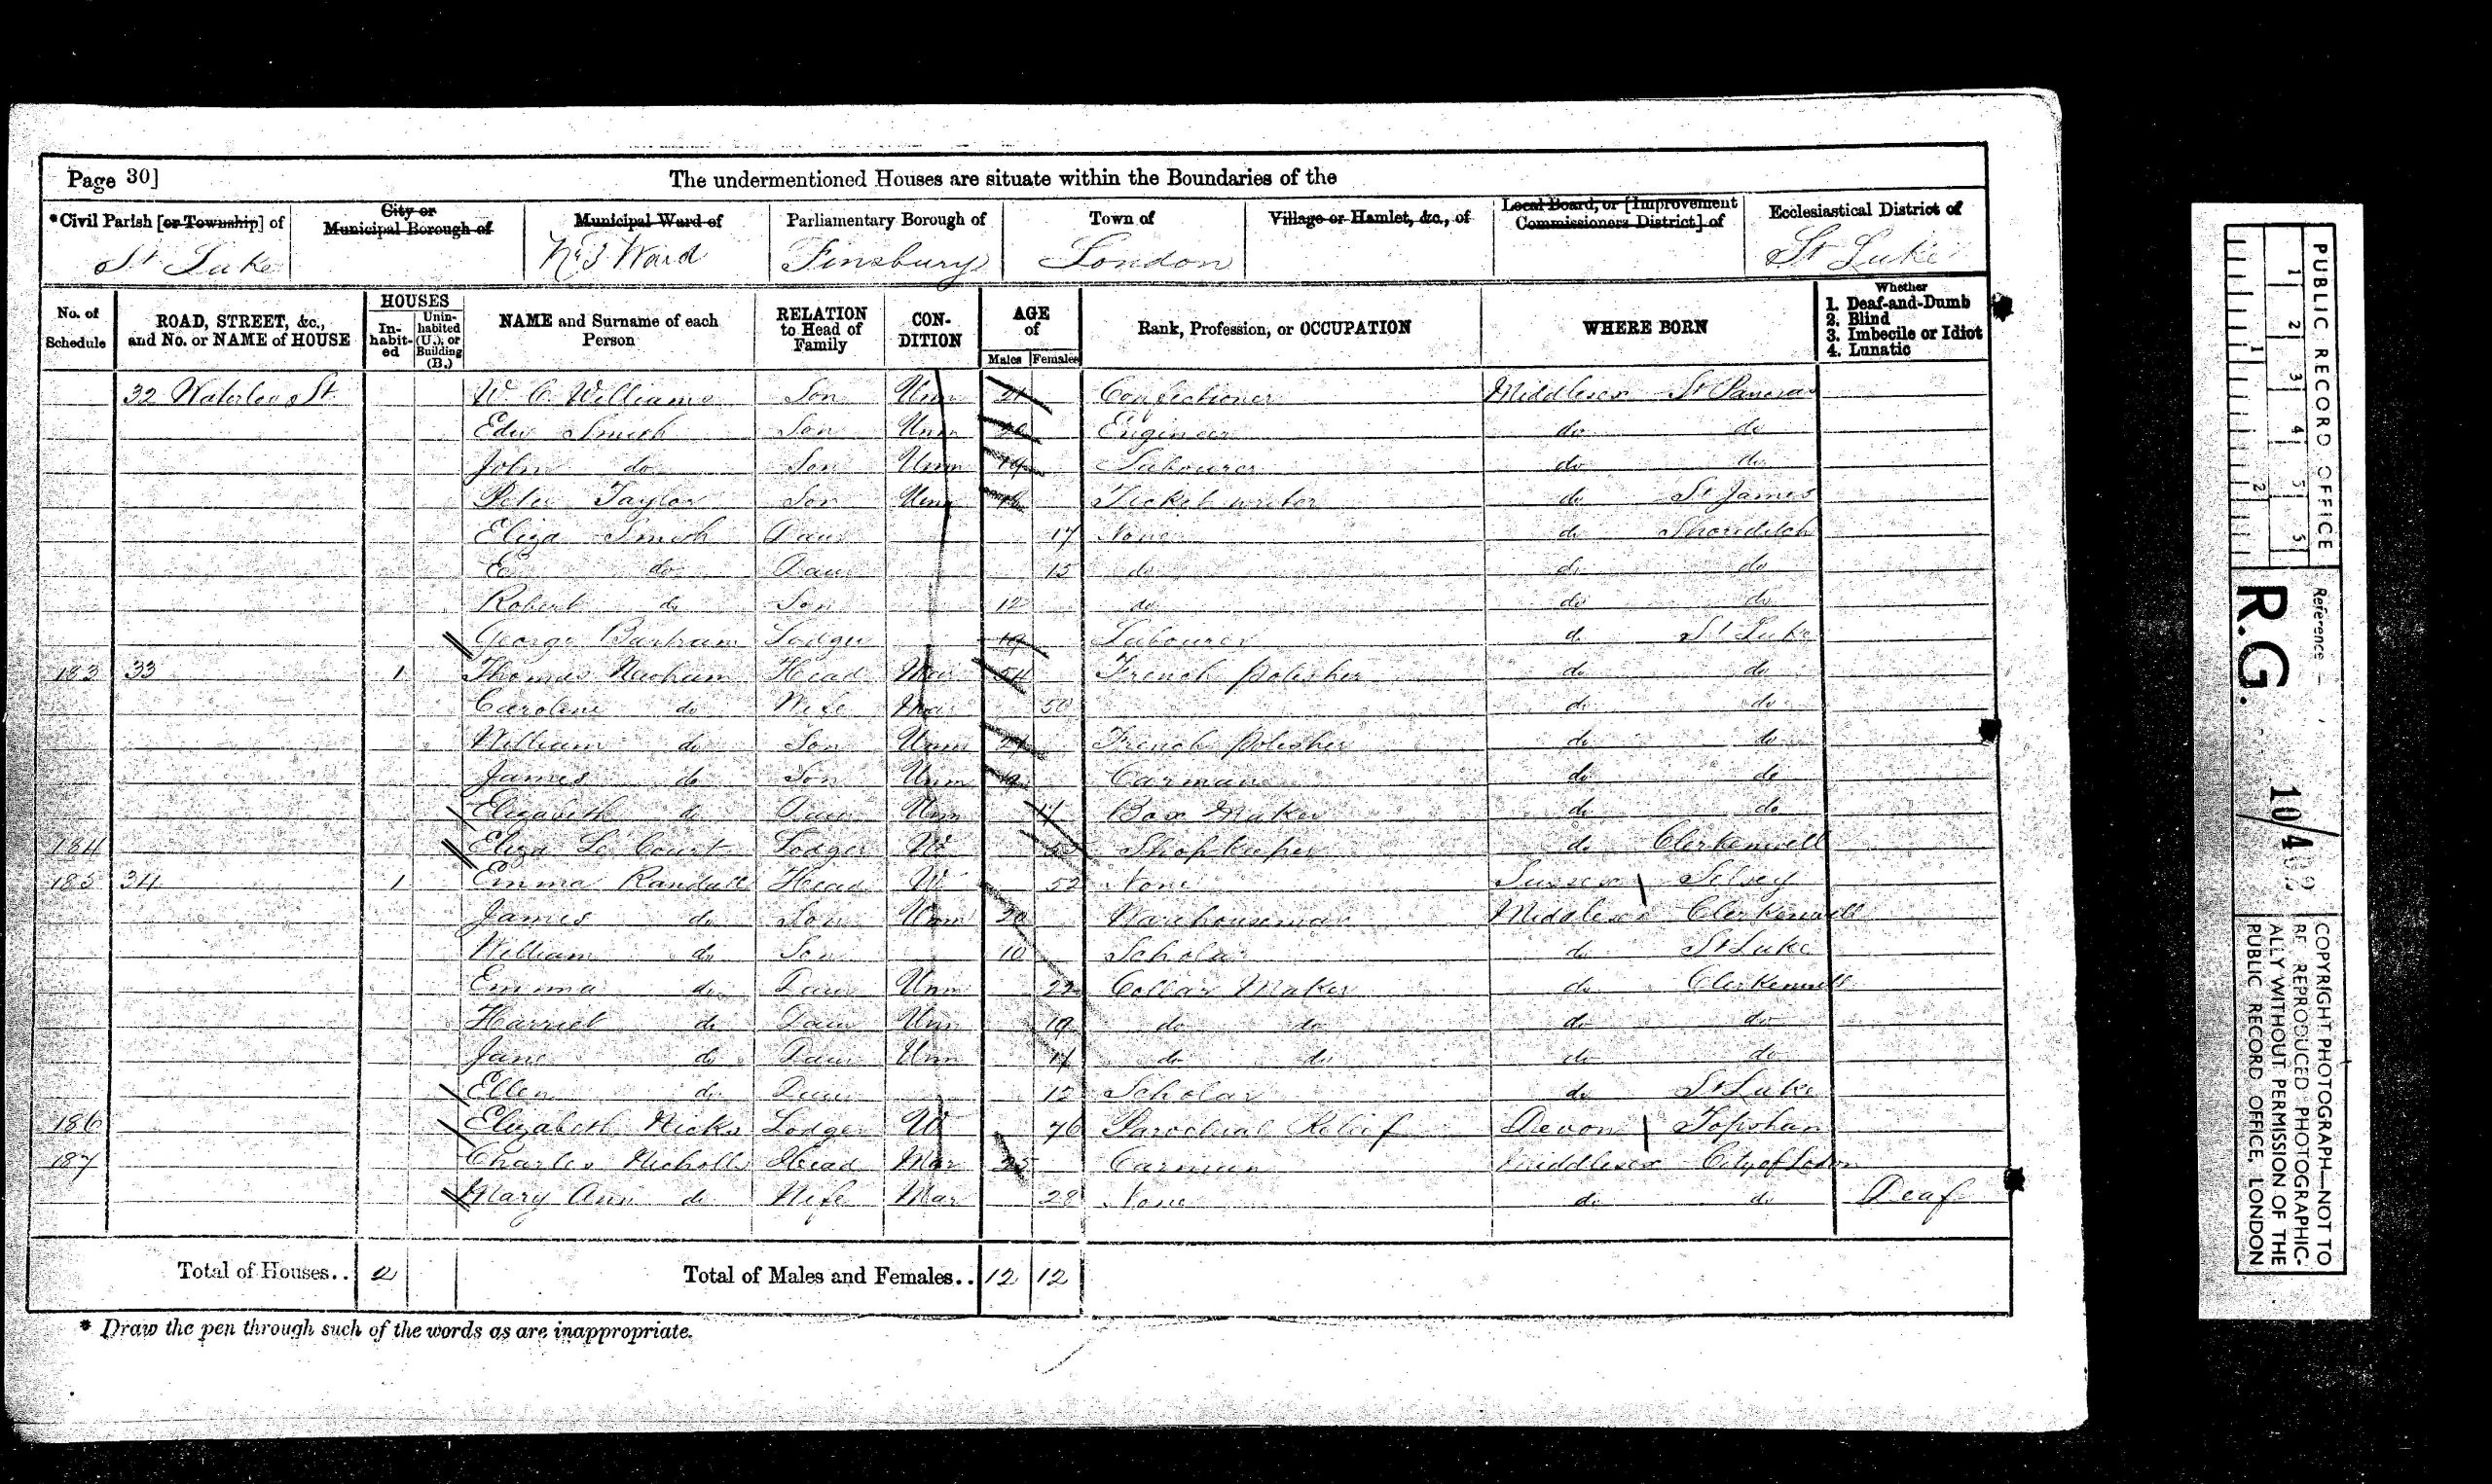 Page 30] The undermentioned Houses are situate within the Boundaries of the
*Civil Parish [or Township] of City or Municipal Borough of Municipal Ward of Parliamentary Borough of Town of Village or Hamlet, &c., of Local Board, or [Improvement Commissioners District] of Ecclesiastical District of
St Luke Ward Finsbury London St Luke
No. of Schedule ROAD, STREET, &c., and No. or NAME of HOUSE HOUSES Inhabited Uninhabited (U.), or Building (B.) NAME and Surname of each Person RELATION to Head of Family CONDITION AGE of Males Females Rank, Profession, or OCCUPATION WHERE BORN Whether 1. Deaf-and-Dumb 2. Blind 3. Imbecile or Idiot 4. Lunatic
32 Waterloo St W C Williams Son Unm 21 Confectioner Middlesex St Pancras
Edw Smith Son Unm Engineer do do
John do Son Unm 19 Labourer do do
Peter Taylor Son Unm Ticket writer do St James
Eliza Smith Daur 17 None do Shoreditch
E do Daur 15 do do do
Robert do Son 12 do do do
George Bartram Lodger 19 Labourer do St Luke
183 33 1 Thomas Head Mar 54 French polisher do do
Caroline do Wife Mar 50 do do
William do Son Unm 21 French polisher do do
James do Son Unm 19 Carman do do
Elizabeth do Daur Unm Box Maker do do
184 Eliza Le Court Lodger W Shopkeeper do Clerkenwell
185 34 1 Emma Randall Head W 52 None Sussex Selsey
James do Son Unm 20 Warehouseman Middlesex Clerkenwell
William do Son 10 Scholar do St Luke
Emma do Daur Unm 22 Collar Maker do Clerkenwell
Harriet do Daur Unm 19 do do do do
Jane do Daur Unm do do do do
Ellen do Daur 12 Scholar do St Luke
186 Elizabeth Hicks Lodger W 76 Parochial Relief Devon Topsham
187 Charles Nicholls Head Mar 25 Carman Middlesex City of Lodon
Mary Ann do Wife Mar 28 None do do Deaf
Total of Houses.. 2 Total of Males and Females.. 12 12
* Draw the pen through such of the words as are inappropriate.
PUBLIC RECORD OFFICE
1 2 3 4 5 5
1 2
Reference
R.G. 10/
COPYRIGHT PHOTOGRAPH—NOT TO
BE REPRODUCED PHOTOGRAPHIC-
ALLY WITHOUT PERMISSION OF THE
PUBLIC RECORD OFFICE, LONDON